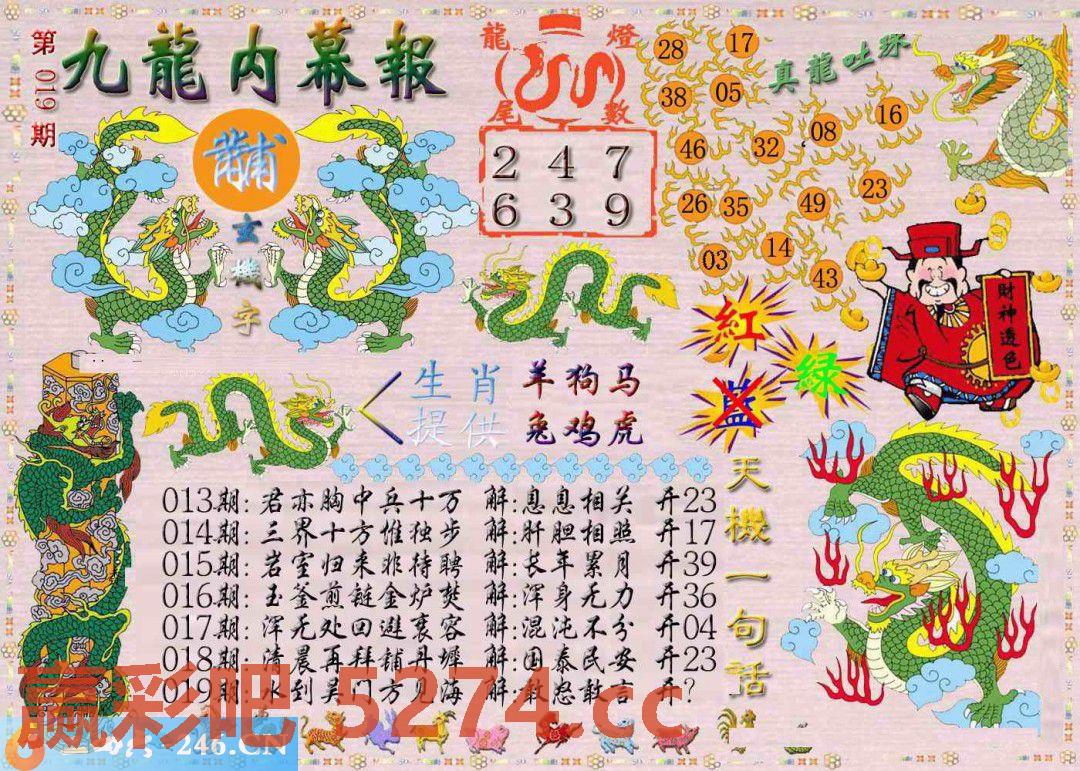 第019期
九龍内幕報
黼
玄機字
龍燈尾數
2 4 7
6 3 9
真龍吐珠
28 17
38 05
16
08
46 32
23
26 35 49
14
03 43
財神透色
紅
綠
藍
生肖提供
羊狗马
兔鸡虎
天機一句話
013期:君亦胸中兵十万 解:息息相关 开23
014期:三界十方惟独步 解:肝胆相照 开17
015期:岩室归来非待聘 解:长年累月 开39
016期:玉釜煎链金炉焚 解:浑身无力 开36
017期:浑无处回避衰容 解:混沌不分 开04
018期:清晨再拜铺丹墀 解:国泰民安 开23
019期:水到吴门方见海 解:敢怒敢言 开?
赢彩吧 5274.cc
246.CN